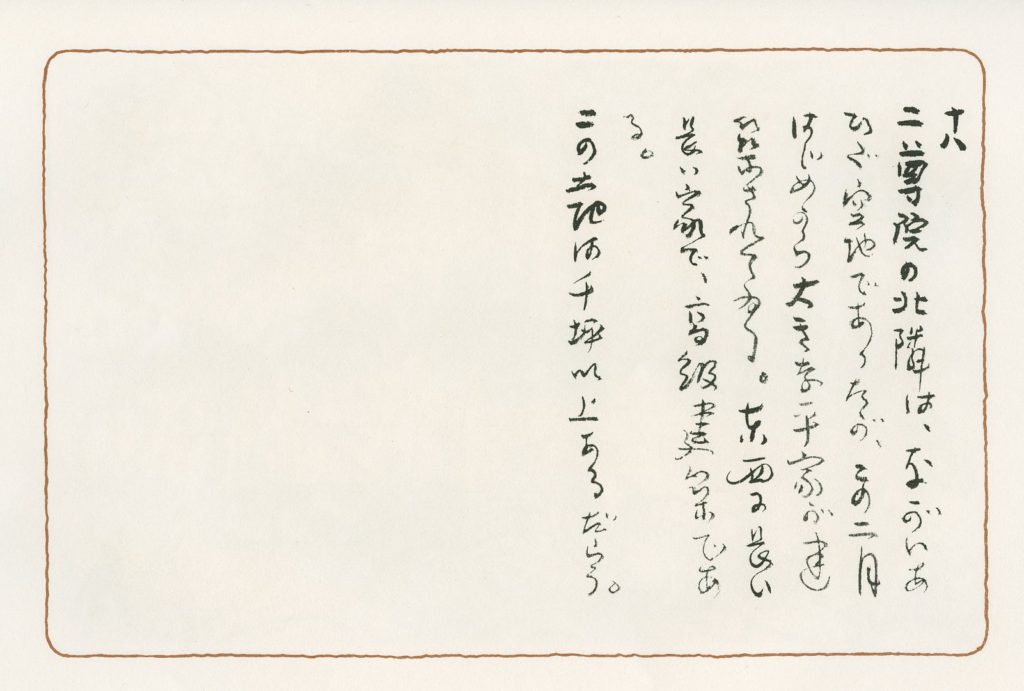 十八
二尊院の北隣は、ながいあ
ひだ空地であつたが、この二月
はじめから大きな平家が建
築されてゐる。東西に長い
長い家で、高級建築であ
る。
この土地は千坪以上あるだらう。